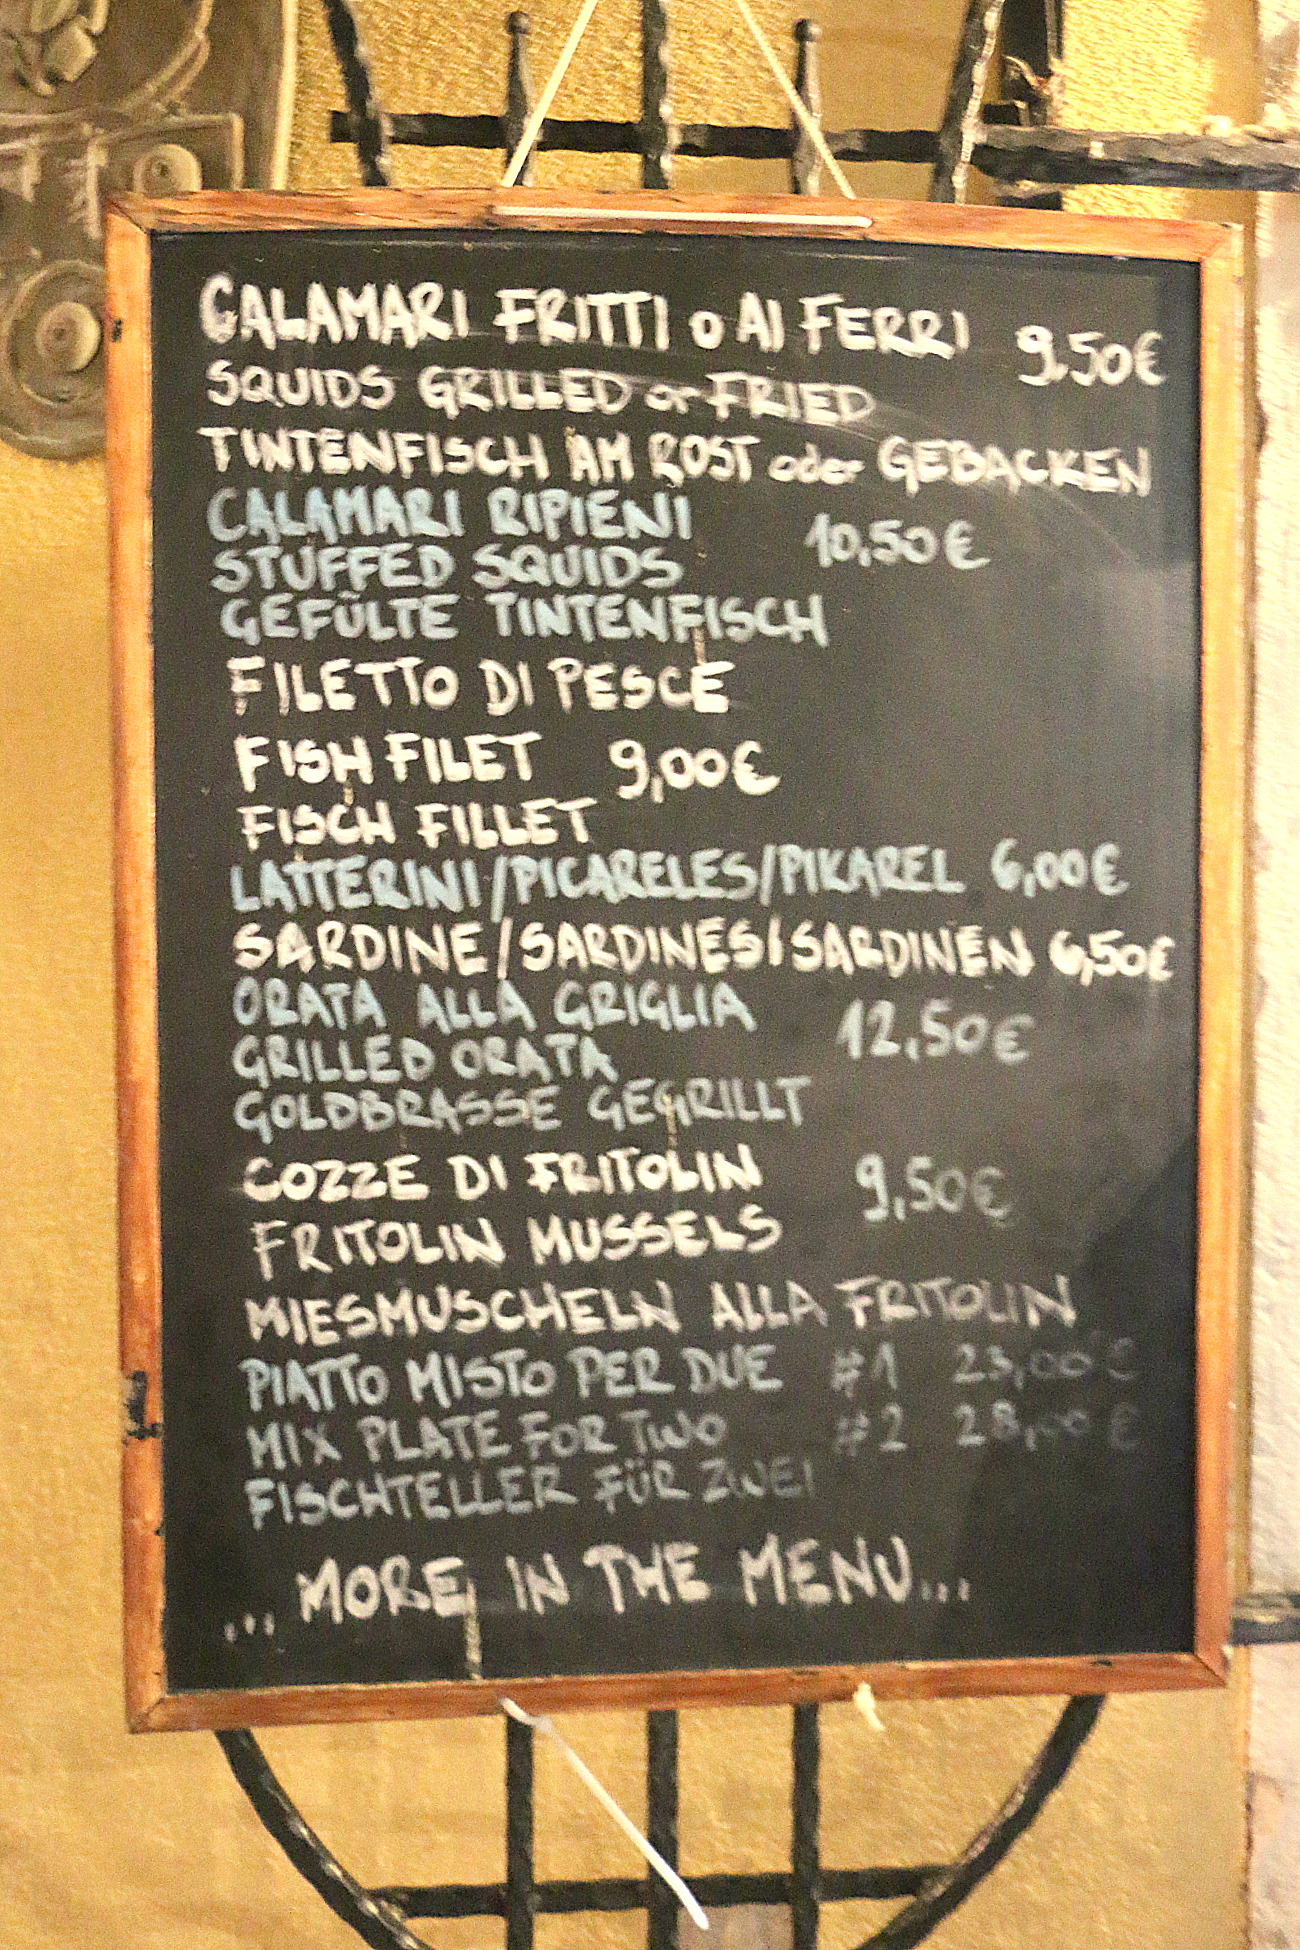 CALAMARI FRITTI o AI FERRI 9,50€
SQUIDS GRILLED or FRIED
TINTENFISCH AM ROST oder GEBACKEN
CALAMARI RIPIENI 10,50€
STUFFED SQUIDS
GEFÜLTE TINTENFISCH
FILETTO DI PESCE
FISH FILET 9,00€
FISCH FILLET
LATTERINI/PICARELES/PIKAREL 6,00€
SARDINE/SARDINES/SARDINEN 6,50€
ORATA ALLA GRIGLIA 12,50€
GRILLED ORATA
GOLDBRASSE GEGRILLT
COZZE DI FRITOLIN 9,50€
FRITOLIN MUSSELS
MIESMUSCHELN ALLA FRITOLIN
PIATTO MISTO PER DUE #1 23,00€
MIX PLATE FOR TWO #2 28,00€
FISCHTELLER FÜR ZWEI
... MORE IN THE MENU...